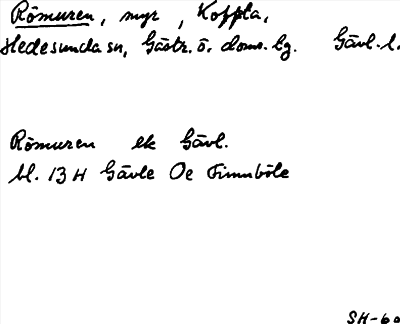 Römuren, myr, Koppla,
Hedesunda sn, Gästr. ö. doms. bg. Gävl. l.
Römuren ek Gävl.
bl. 13 H Gävle Oe Finnböle
SH-60